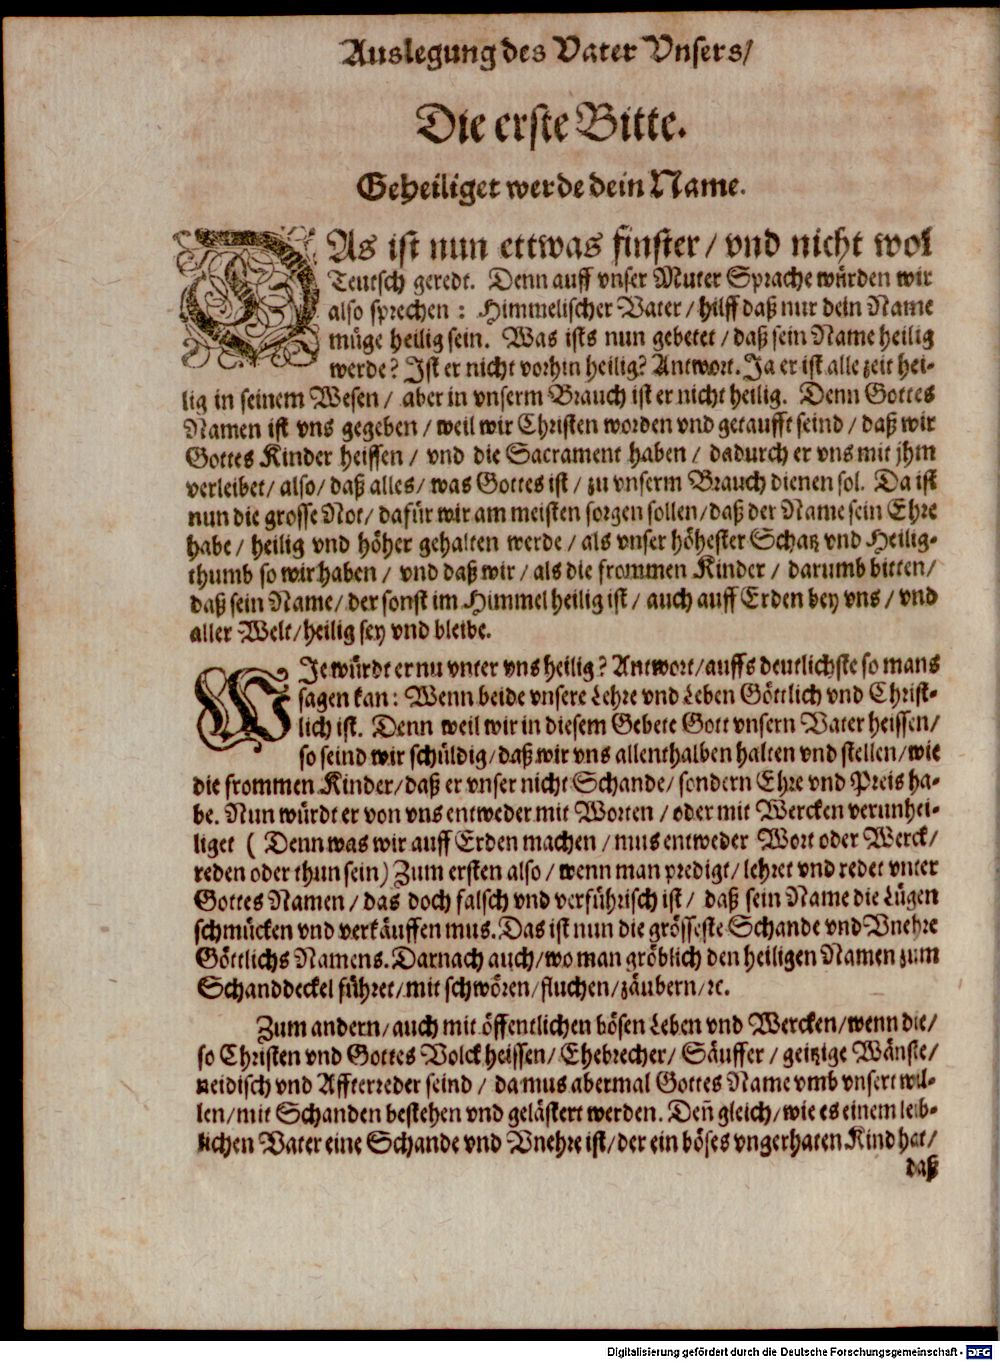 Auslegung des Vater Vnsers/
Die erste Bitte.
Geheiliget werde dein Name.
DAs ist nun ettwas finster/ vnd nicht wol
Teutsch geredt. Denn auff vnser Muter Sprache würden wir
also sprechen: Himmelischer Vater/ hilff daß nur dein Name
müge heilig sein. Was ists nun gebetet/ daß sein Name heilig
werde? Ist er nicht vorhin heilig? Antwort. Ja er ist alle zeit hei-
lig in seinem Wesen/ aber in vnserm Brauch ist er nicht heilig. Denn Gottes
Namen ist vns gegeben/ weil wir Christen worden vnd getaufft seind/ daß wir
Gottes Kinder heissen/ vnd die Sacrament haben/ dadurch er vns mit jhm
verleibet/ also/ daß alles/ was Gottes ist/ zu vnserm Brauch dienen sol. Da ist
nun die grosse Not/ dafür wir am meisten sorgen sollen/ daß der Name sein Ehre
habe/ heilig vnd höher gehalten werde/ als vnser höhester Schatz vnd Heilig-
thumb so wir haben/ vnd daß wir/ als die frommen Kinder/ darumb bitten/
daß sein Name/ der sonst im Himmel heilig ist/ auch auff Erden bey vns/ vnd
aller Welt/ heilig sey vnd bleibe.
WIe würdt er nu vnter vns heilig? Antwort/ auffs deutlichste so mans
sagen kan: Wenn beide vnsere Lehre vnd Leben Göttlich vnd Christ-
lich ist. Denn weil wir in diesem Gebete Gott vnsern Vater heissen/
so seind wir schüldig/ daß wir vns allenthalben halten vnd stellen/ wie
die frommen Kinder/ daß er vnser nicht Schande/ sondern Ehre vnd Preis ha-
be. Nun würdt er von vns entweder mit Worten/ oder mit Wercken verunhei-
liget (Denn was wir auff Erden machen/ mus entweder Wort oder Werck/
reden oder thun sein) Zum ersten also/ wenn man predigt/ lehret vnd redet vnter
Gottes Namen/ das doch falsch vnd verführisch ist/ daß sein Name die Lügen
schmücken vnd verkäuffen mus. Das ist nun die grösseste Schande vnd Vnehre
Göttlichs Namens. Darnach auch/ wo man gröblich den heiligen Namen zum
Schanddeckel führet/ mit schwören/ fluchen/ zäubern/ ꝛc.
Zum andern/ auch mit öffentlichen bösen Leben vnd Wercken/ wenn die/
so Christen vnd Gottes Volck heissen/ Ehebrecher/ Säuffer/ geitzige Wänste/
neidisch vnd Affterreder seind/ da mus abermal Gottes Name vmb vnsert wil-
len/ mit Schanden bestehen vnd gelästert werden. Deñ gleich/ wie es einem leib-
lichen Vater eine Schande vnd Vnehre ist/ der ein böses vngerhaten Kind hat/
daß
Digitalisierung gefördert durch die Deutsche Forschungsgemeinschaft - DFG